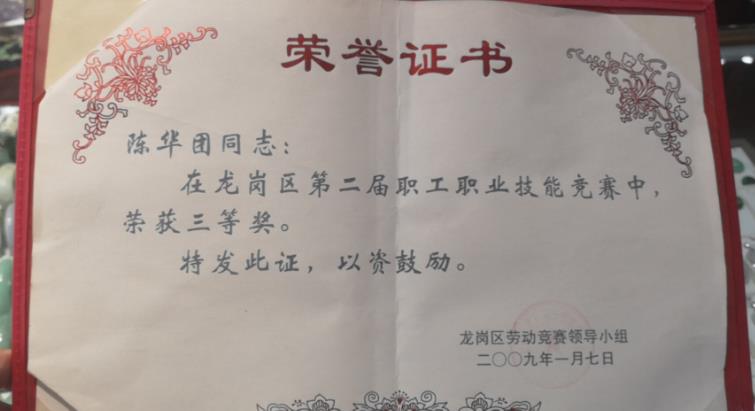 荣誉证书
陈华团同志：
在龙岗区第二届职工职业技能竞赛中，
荣获三等奖。
特发此证，以资鼓励。
龙岗区劳动竞赛领导小组
二〇〇九年一月七日